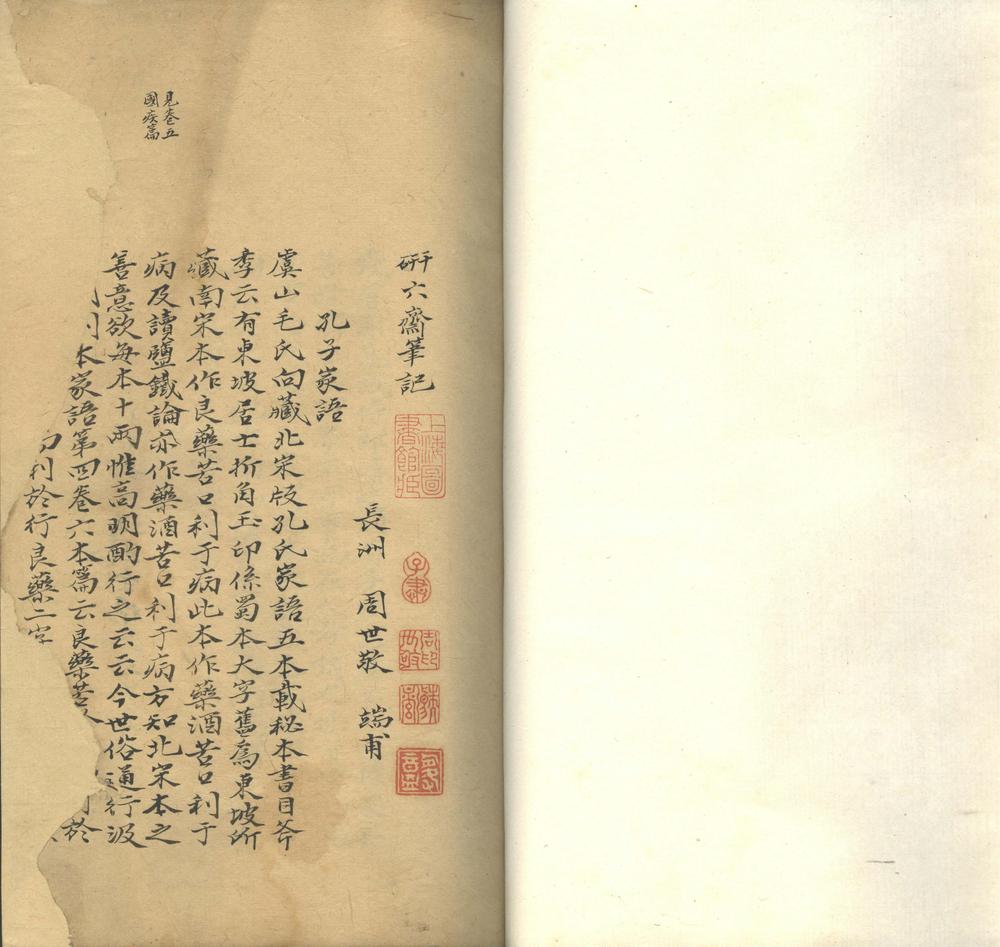 研六齋筆記
長洲 周世敬 端甫
孔子家語
虞山毛氏向藏北宋版孔氏家語五本載秘本書目斧
季云有東坡居士折角玉印係蜀本大字舊爲東坡所
藏南宋本作良藥苦口利于病此本作藥酒苦口利于
病及讀鹽鐵論亦作藥酒苦口利于病方知北宋本之
善意欲每本十兩惟高明酌行之云云今世俗通行汲
本家語第四卷六本篇云良藥苦
於
利於行良藥二字
見卷五
國疾篇
上海圖書館藏
子肅
周世敬印